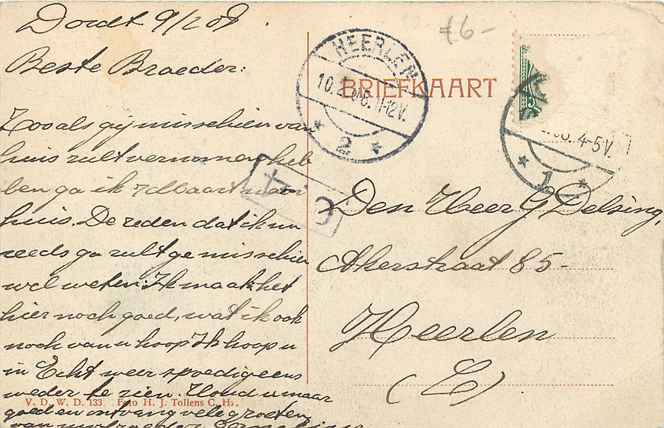 Dordt 9/2 08
£6-
HEERLEN
10.2.08.11-12V.
2
BRIEFKAART
.08.4-5V.
1
Beste Broeder:
Zooals gij misschien van
huis zult vernomen heb
ben ga ik
huis. De reden dat ik nu
reeds ga zult ge misschien
wel weten. Ik maak het
hier nog goed, wat ik ook
noch van u hoop. Ik hoop u
in Echt weer spoedig eens
weder te zien. Houd u maar
goed en ontvang vele groeten
van
Den Heer G Delsing,
Akerstraat 85-
Heerlen
(L)
V. D. W. D. 133. Foto H. J. Tollens C. Hz.